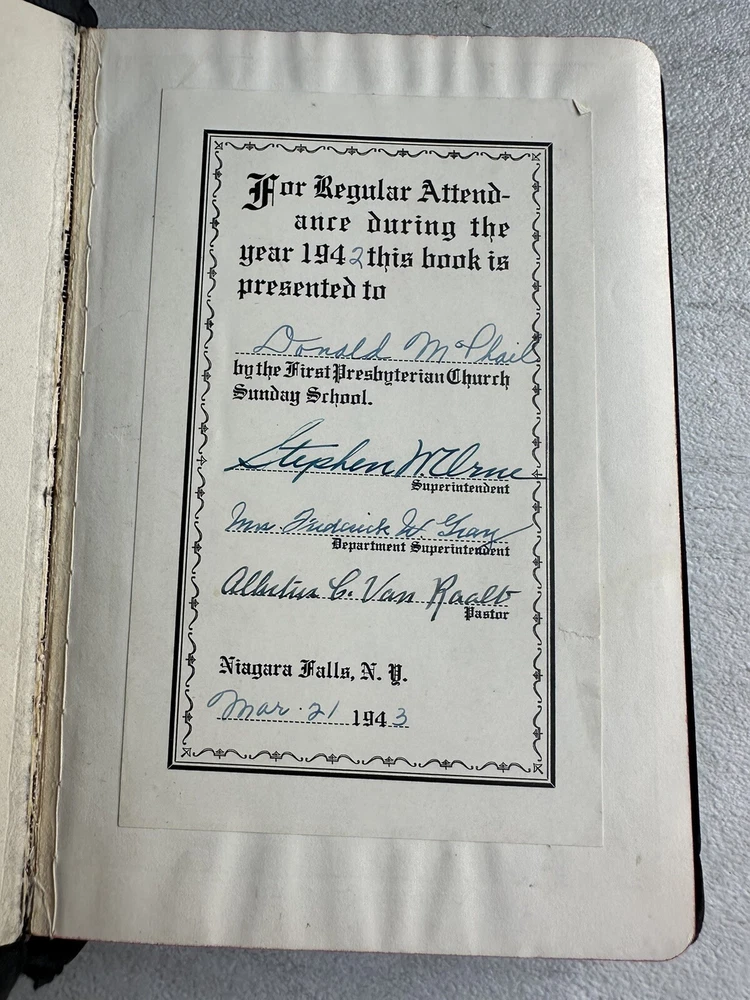 For Regular Attend-
ance during the
year 1942 this book is
presented to
Donald McPhail
by the First Presbyterian Church
Sunday School.
Stephen W. Orne
Superintendent
Mrs Frederick W. Gray
Department Superintendent
Albertus C. Van Raalte
Pastor
Niagara Falls, N. Y.
Mar. 21 1943